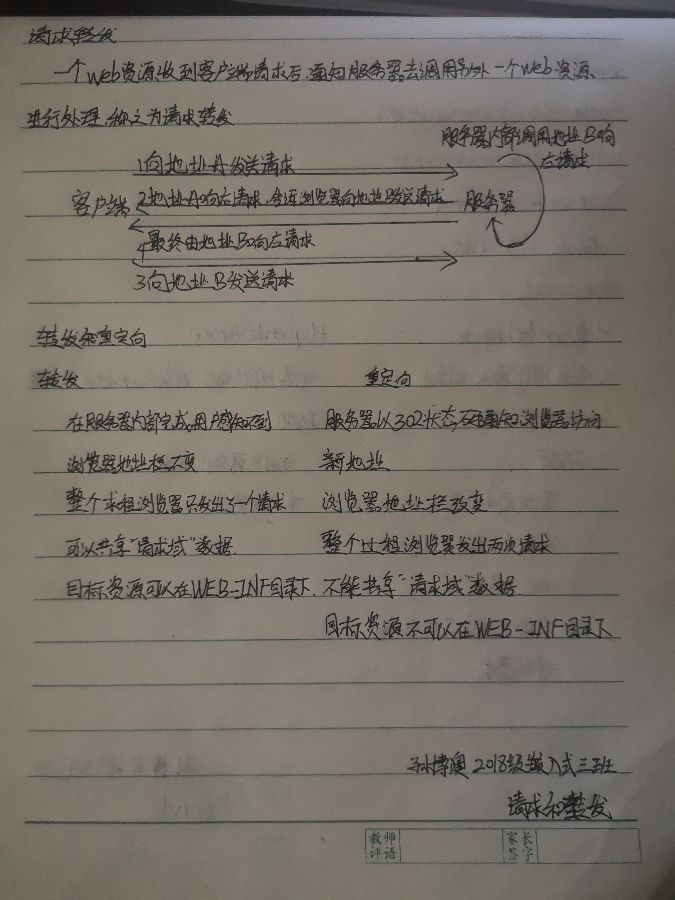 请求转发
一个web资源收到客户端请求后,通知服务器去调用另外一个web资源
进行处理,称之为请求转发
服务器内部调用地址B响
应请求
1向地址A发送请求
客户端
2地址A响应请求,告诉浏览器向地址B发送请求
服务器
4最终由地址B响应请求
3向地址B发送请求
转发和重定向
转发
重定向
在服务器内部完成,用户感知不到
服务器以302状态,通知浏览器访问
浏览器地址栏不变
新地址
整个求程浏览器只发出了一个请求
浏览器地址栏改变
可以共享"请求域"数据
整个过程浏览器发出两次请求
目标资源可以在WEB-INF目录下
不能共享"请求域"数据
目标资源不可以在WEB-INF目录下
孙博奥 2018级嵌入式三班
请求和转发
教师
评语
家长
签字